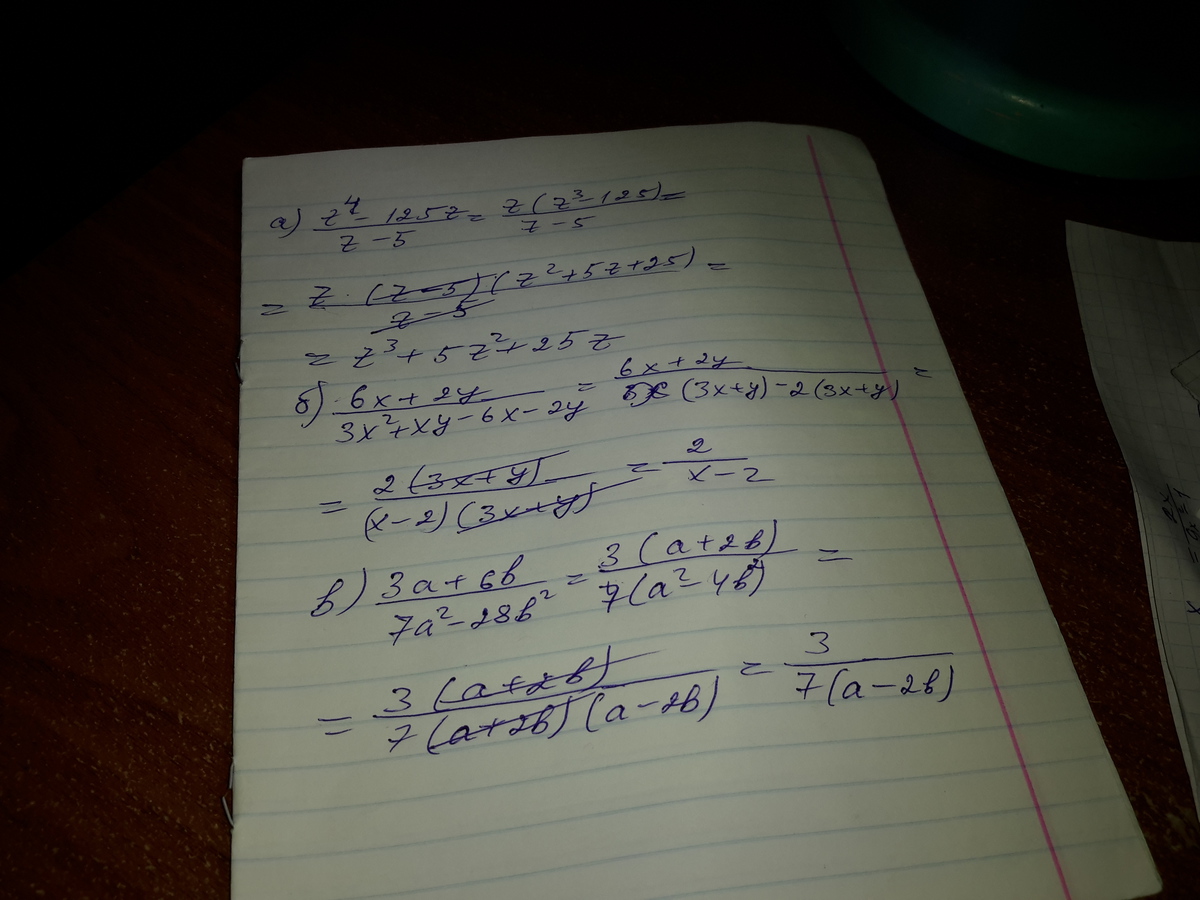 а) z⁴-125z/z-5 = z(z³-125)/z-5 =
= z·(z-5)(z²+5z+25)/z-5 =
= z³+5z²+25z
б) 6x+2y/3x²+xy-6x-2y = 6x+2y/x(3x+y)-2(3x+y) =
= 2(3x+y)/(x-2)(3x+y) = 2/x-2
в) 3a+6b/7a²-28b² = 3(a+2b)/7(a²-4b²) =
= 3(a+2b)/7(a+2b)(a-2b) = 3/7(a-2b)